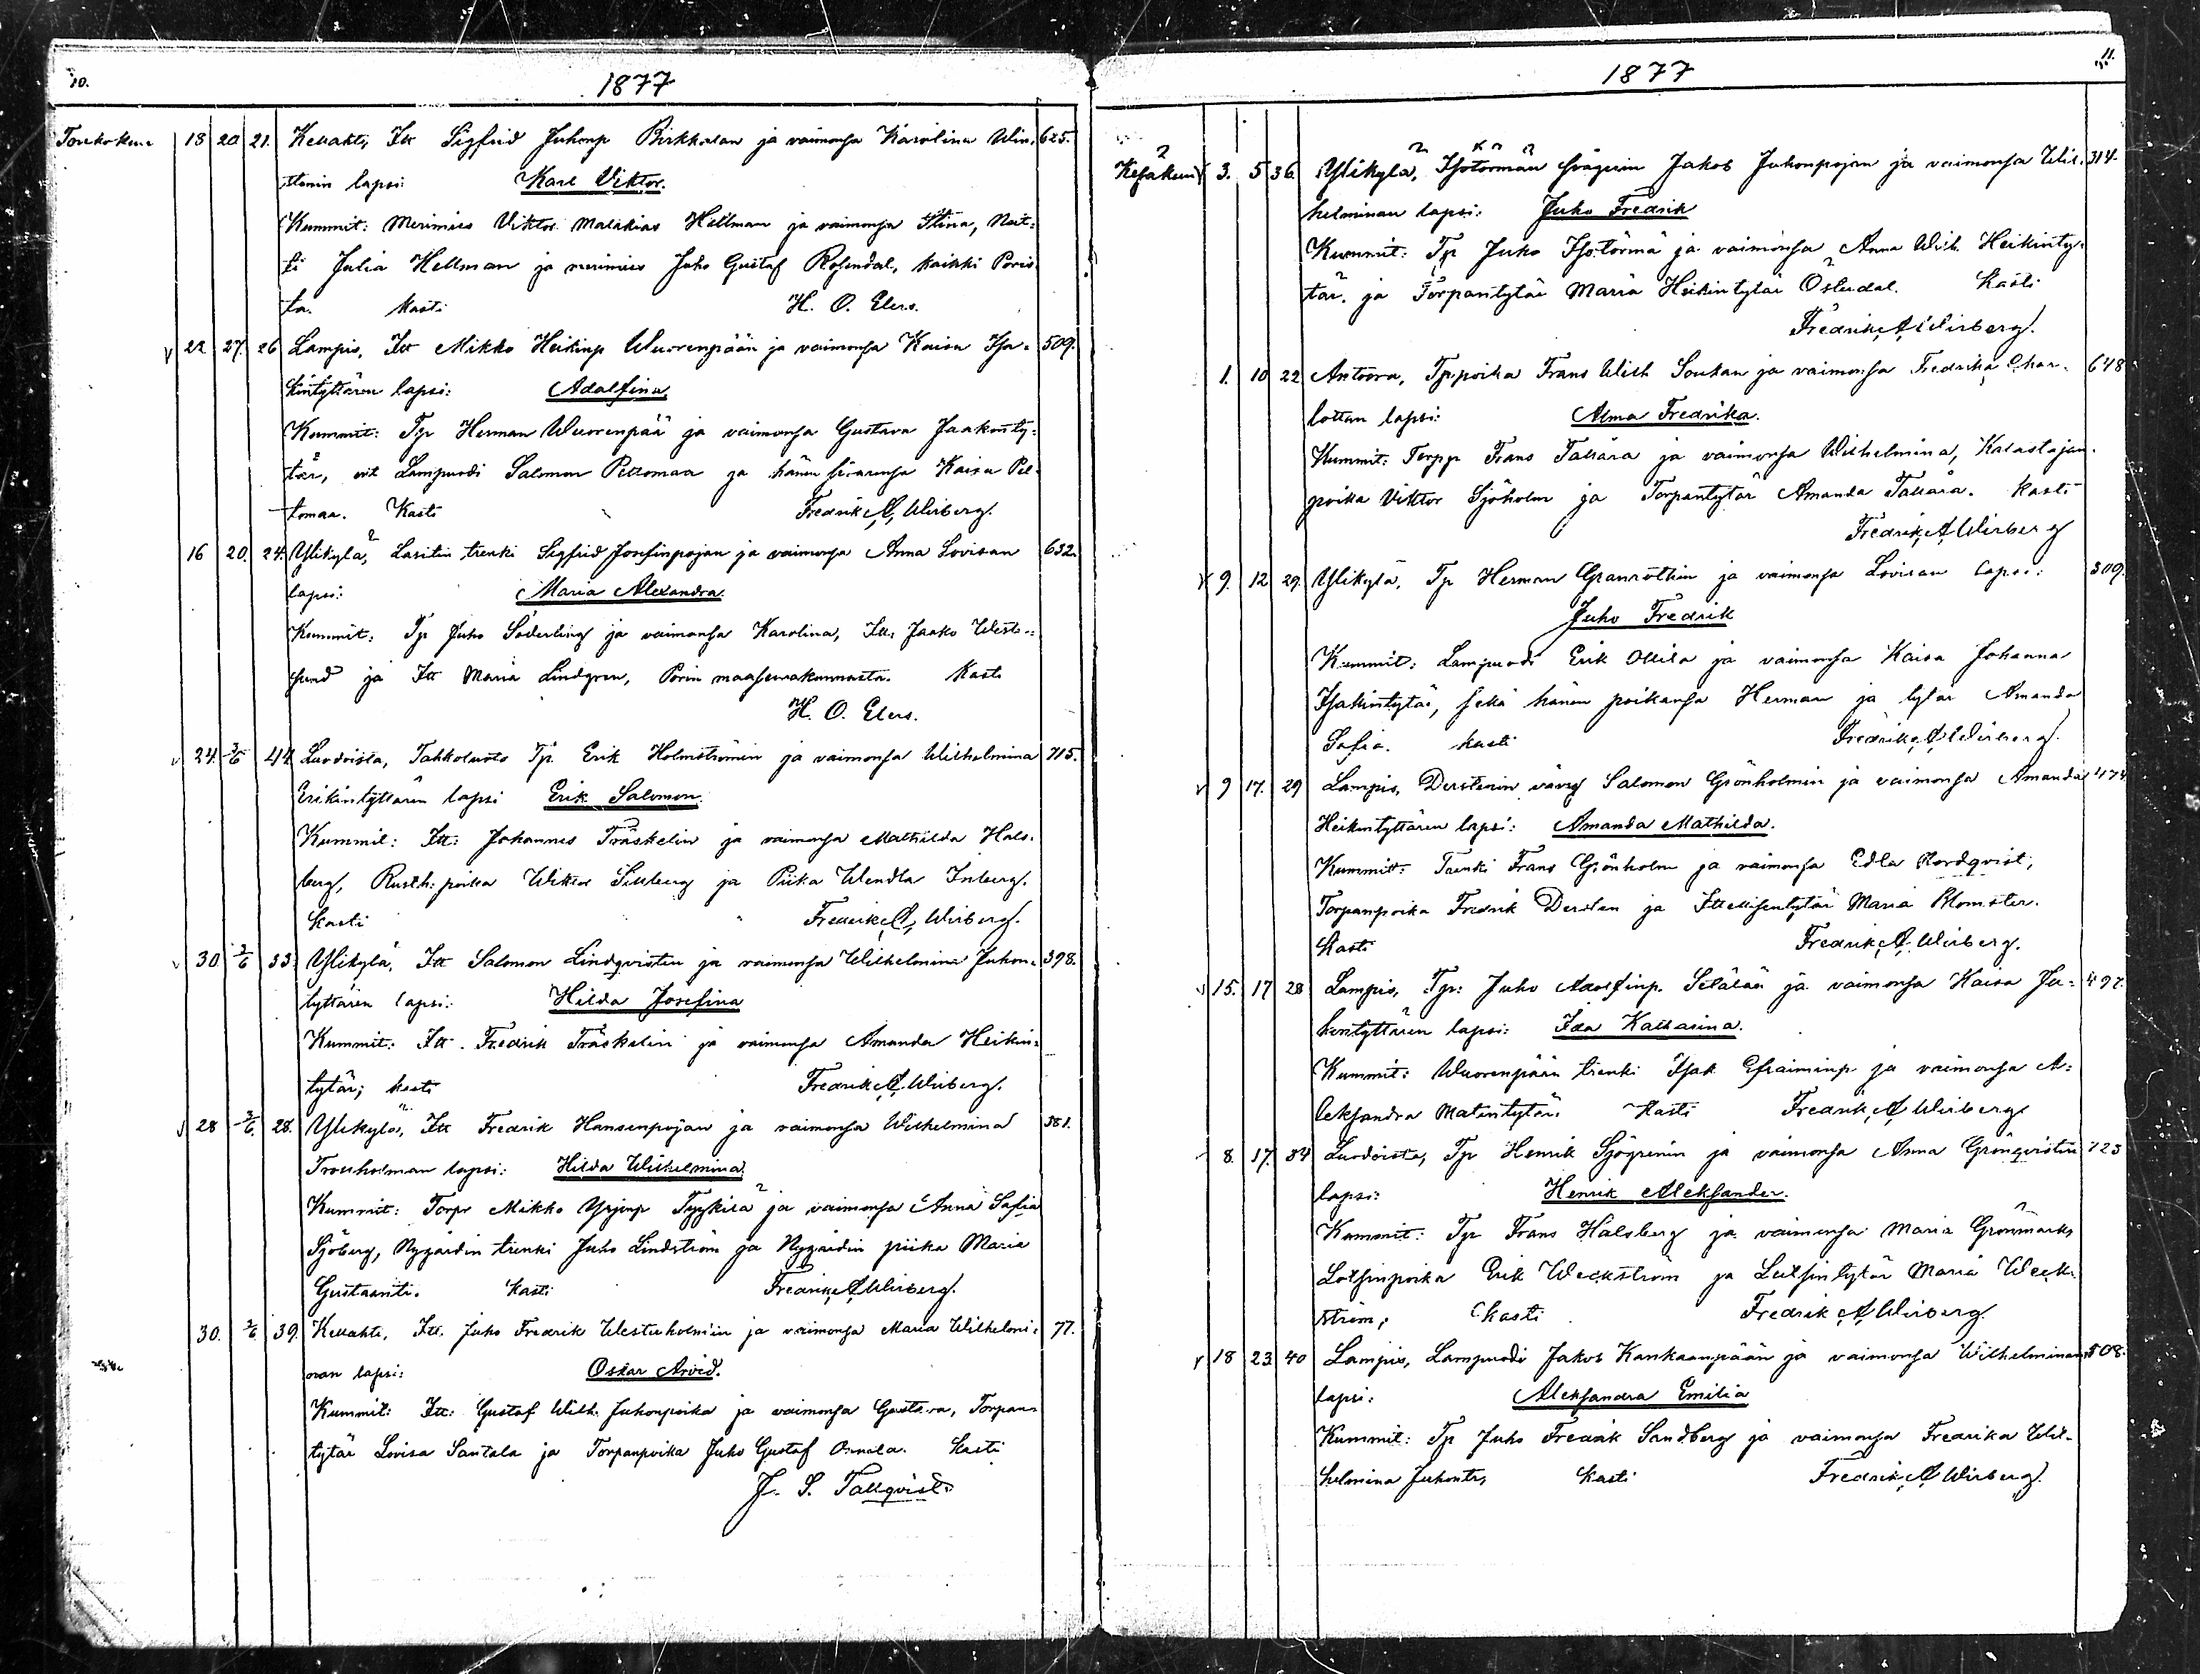 10.
1877
Toukokuu 18 20 21. Kellahti, Itt Sigfrid Juhonp Birkkolan ja vaimonsa Karolina Win- 625.
lapsi: Karl Viktor.
Kummit: Merimies Viktor Malakias Hellman ja vaimonsa Stina, Neit-
ti Julia Hellman ja merimies Juho Gustaf Rosendal, kaikki Poris
ta. Kasti H. O. Elers.
22 27. 26 Lampis, Itt Mikko Heikinp Wuorenpään ja vaimonsa Kaisa Isa- 509.
kintyttären lapsi: Adalfina.
Kummit: Tp Herman Wuorenpää ja vaimonsa Gustava Jaakonty-
tär, Lampuodi Salomon Peltomaa ja hänen sisarensa Kaisa Pel-
tomaa. Kasti Fredrik A. Wirberg.
16 20. 24. Ylikylä, trenki Sigfrid Josefinpojan ja vaimonsa Anna Lovisan 632.
lapsi: Maria Alexandra.
Kummit: Tp Juho Söderling ja vaimonsa Karolina, Itt. Jaako Westr-
lund ja Itt Maria Lindgren, Porin maaseurakunnasta. Kasti
H. O. Elers.
24. 3/6 44 Luodoista, Tahkoluoto Tp. Erik Holmströmin ja vaimonsa Wilhelmina 715.
Erikintyttären lapsi Erik Salomon.
Kummit: Itt: Johannes Träskelin ja vaimonsa Mathilda Hals-
berg, Rusth: poika Wiktor Sillberg ja Piika Wendla Inberg.
Kasti Fredrik A. Wirberg.
30. 3/6 33 Ylikylä, Itt Salomon Lindqvistin ja vaimonsa Wilhelmina Juhon- 398.
tyttären lapsi: Hilda Josefina
Kummit: Itt. Fredrik Träskelin ja vaimonsa Amanda Heikin-
tytär; kasti Fredrik A. Wirberg.
28 3/6. 28. Ylikylä, Itt Fredrik Hansenpojan ja vaimonsa Wilhelmina 381.
Trousholman lapsi: Hilda Wilhelmina.
Kummit: Torpr Mikko Yrjönp Tyyskilä ja vaimonsa Anna Sofia
Sjöberg, Nygårdin trenki Juho Lindström ja Nygårdin piika Maria
Gustaanti. Kasti Fredrik A. Wirberg.
30. 3/6. 39. Kellahti, Itt. Juho Fredrik Westerholmin ja vaimonsa Maria Wilhelmi- 77.
nan lapsi: Oskar Arvid.
Kummit: Itt: Gustaf Wilh. Juhonpoika ja vaimonsa Gustava, Torpan-
tytär Lovisa Santala ja Torpanpoika Juho Gustaf Kasti
J. S. Tallqvist.
11.
1877
Kesäkuu 3. 5 36. Ylikylä, Isotörmän Jakob Juhonpojan ja vaimonsa Wil- 314.
helminan lapsi: Juho Fredrik
Kummit: Tp Juho Isotörmä ja vaimonsa Anna Wilh. Heikinty-
tär. ja Torpantytär Maria Heikintytär Österdal. Kasti
Fredrik A Wirberg.
1. 10 22 Antoora, Tp:poika Frans Wilh Soukan ja vaimonsa Fredrika Char- 648
lottan lapsi: Alma Fredrika.
Kummit: Torpp Frans Tallära ja vaimonsa Wilhelmina, Kalastajan-
poika Viktor Sjöholm ja Torpantytär Amanda Tallära. Kasti
Fredrik A Wirberg
9. 12 29. Ylikylä, Tp Herman Granrothin ja vaimonsa Lovisan lapsi: 309.
Juho Fredrik
Kummit: Lampuodi Erik Ollila ja vaimonsa Kaisa Johanna
Isakintytär, sekä hänen poikansa Herman ja tytär Amanda
Sofia. Kasti Fredrik A Wirberg.
9 17. 29 Lampis, Derstenin vävy Salomon Grönholmin ja vaimonsa Amanda 474
Heikintyttären lapsi: Amanda Mathilda.
Kummit: Trenki Frans Grönholm ja vaimonsa Edla Nordqvist,
Torpanpoika Fredrik Dersten ja Itsellisentytär Maria Blomster.
Kasti Fredrik A. Wirberg.
15. 17 28 Lampis, Tp: Juho Adolfinp. Selälän ja vaimonsa Kaisa Ja- 497.
kintyttären lapsi: Ida Katharina.
Kummit: Wuorenpään trenki Isak Efraiminp ja vaimonsa A-
leksandra Matintytär. Kasti Fredrik A Wirberg
8. 17. 34 Luodoista, Tp Henrik Sjögrenin ja vaimonsa Anna Grönqvistin 723
lapsi: Henrik Aleksander.
Kummit: Tp Frans Halsberg ja vaimonsa Maria Grönmark,
Lotsinpoika Erik Weckström ja Lotsintytär Maria Weck-
ström; Kasti Fredrik A Wirberg.
18 23. 40 Lampis, Lampuodi Jakob Kankaanpään ja vaimonsa Wilhelminan 508.
lapsi: Aleksandra Emilia
Kummit: Tp Juho Fredrik Sandberg ja vaimonsa Fredrika Wil-
helmina Juhontr, Kasti Fredrik A Wirberg.